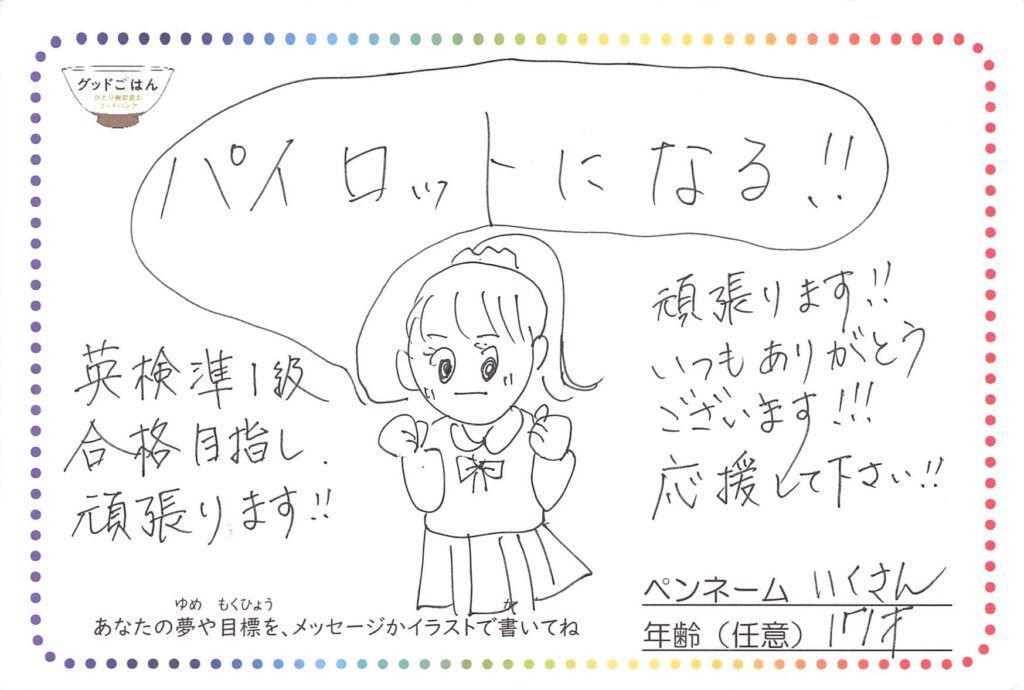 グッドごはん
ひとり親家庭の
フードバンク
パイロットになる!!
英検準1級
合格目指し
頑張ります!!
頑張ります!!
いつもありがとう
ございます!!!
応援して下さい!!
ゆめ もくひょう か
あなたの夢や目標を、メッセージかイラストで書いてね
ペンネーム いくさん
年齢(任意) 17才